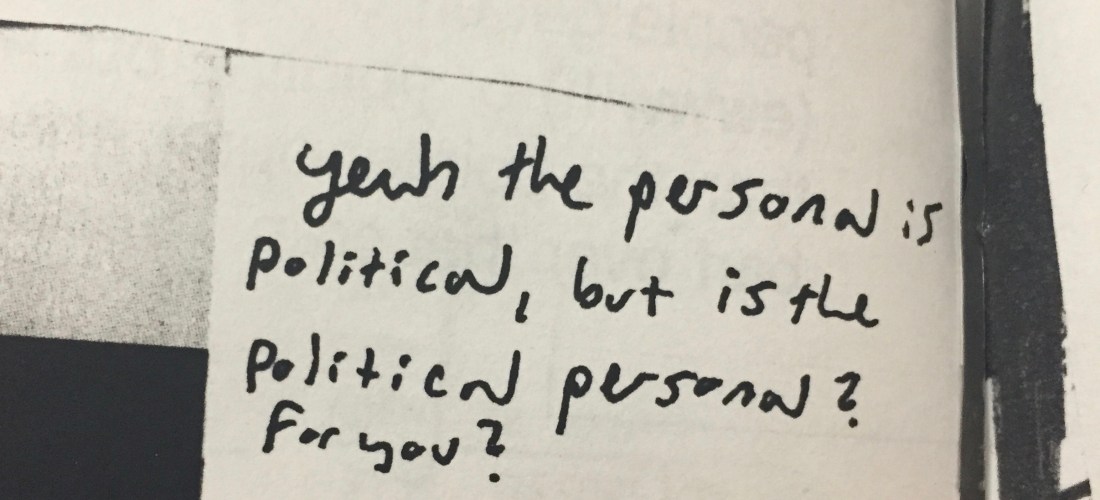 yeah the personal is
political, but is the
political personal?
for you?